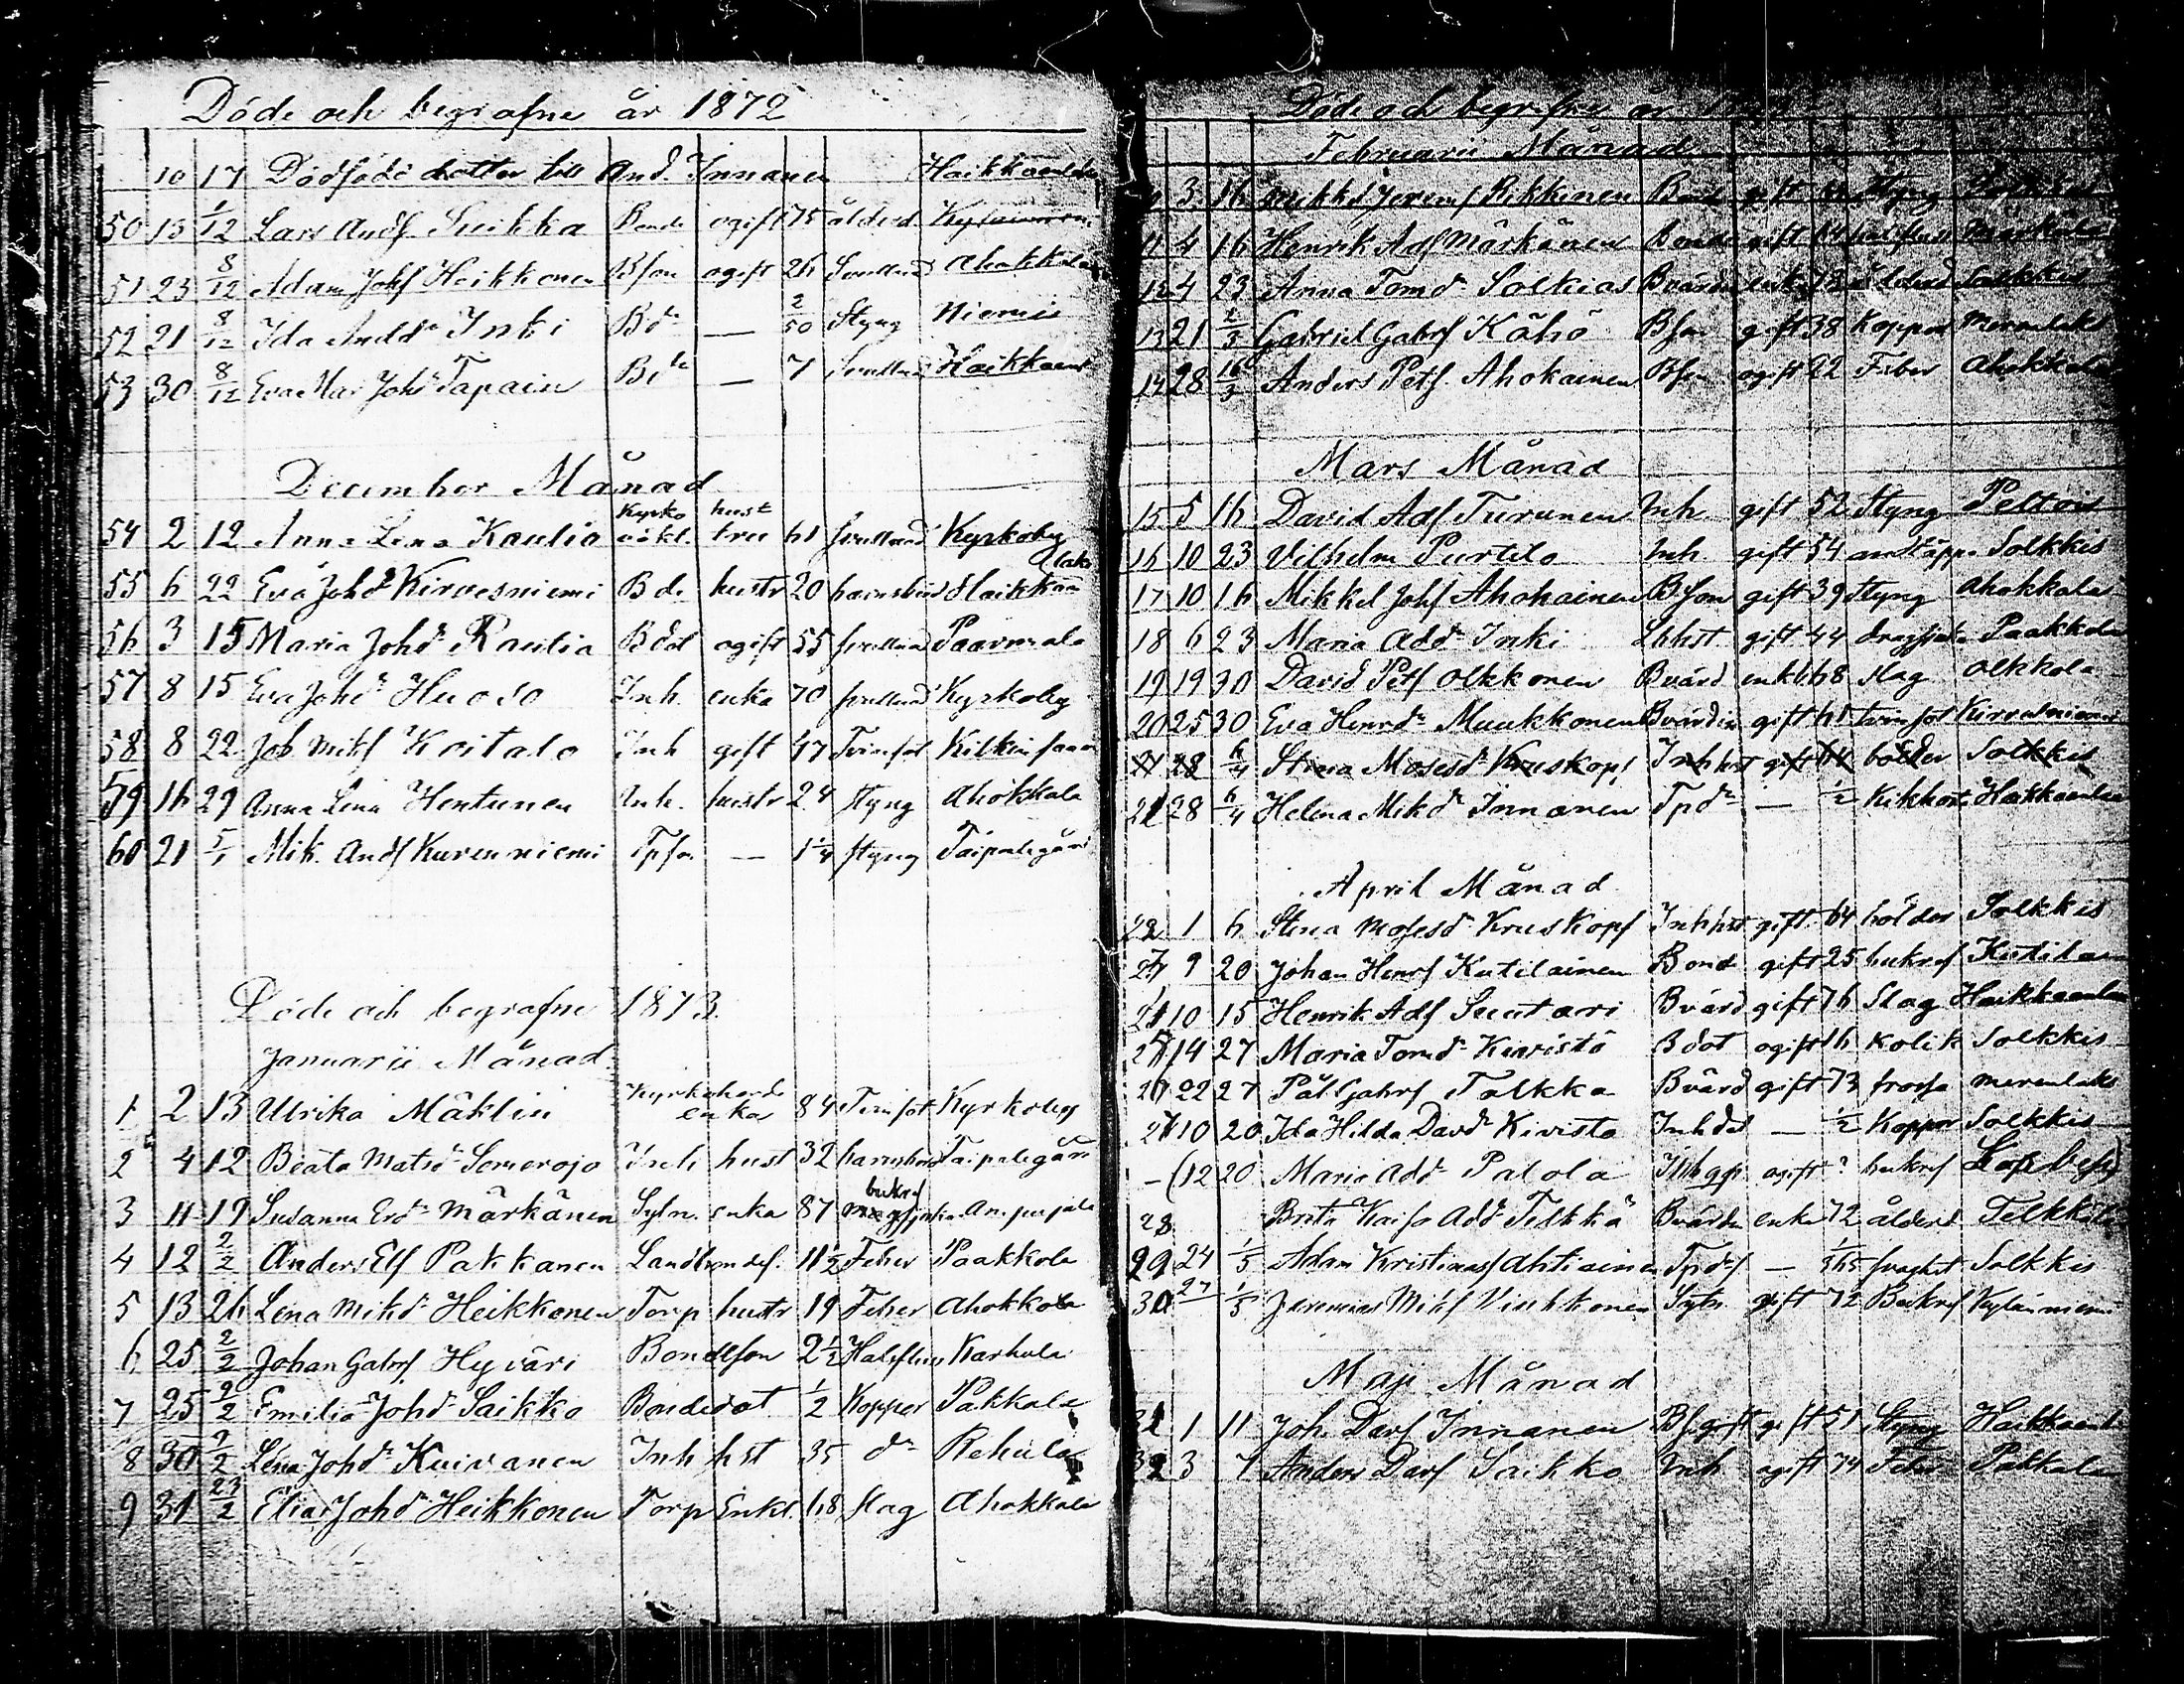 Döde och begrafne år 1872
10 17 Dödfödd dotter till And. Innanen Haikkaanlaks
50 15 1/12 Lars Andf Suikka Bonde ogift 75 ålderd.
51 23 8/12 Adam Johf Heikkonen Bson ogift 26 Ahokkala
52 21 8/12 Ida Andd Inki Bdr — 2/50 Styng Niemis
53 30 8/12 Eva Mar Johd Tapain — 7 Haikkaanl
December Månad
54 2 12 Anna Lena Rautio Kyrko väkt. hustru 61 Kyrkoby
55 6 22 Eva Johd Kirvesniemi Bde hustr 20 barnsbörd Haikkaan laks
56 3 15 Maria Johd Rautia Bdot ogift 55 Paavmala
57 8 15 Eva Johd Huoso Inh. enka 70 Kyrkoby
58 8 22 Joh Mikf Koitalo Inh gift 47 Tvinsot
59 16 29 Anna Lena Hentunen Inh. hustr 24 styng Ahokkala
60 21 5/1 Mik. Andf Kurenniemi Tpso. — 1 1/4 styng Taipalegård
Döde och begrafne 1873.
Januarii Månad
1 2 13 Ulrika Mäklin enka 84 Tvinsot Kyrkoby
2 4 12 Beata Matsd Somerojo Inh hust 32 barnsbörd Taipalegård
3 11 19 Susanna Erd Märkänen Sytn. enka 87 bukref
4 12 2/2 Anders Elf Pakkanen Landbondes. 11 1/2 Feber Paakkola
5 13 26 Lena Mikd Heikkonen Torp hustr 19 Feber Ahokkola
6 25 2/2 Johan Gabrf Hyväri Bondeson 2 1/2 Halsfluss Karhula
7 25 9/2 Emilia Johd Saikko Bondedot 1/2 Koppor Pakkala
8 30 9/2 Lena Johd Kuivanen Inh hst 35 do Rehula
9 31 23/2 Elias Johd Heikkonen Torp Enkl. 68 slag Ahokkala
Döde och begrafne år
Februarii Månad
3 16 Mikkel Jeremf Rikkonen Bond gift Styng
11 4 16 Henrik Adf Märkänen Bonde gift 64 halsfluss Märkälä
12 4 23 Anna Tomd Solkias Bvärdi enka 73 ålderd Solkkis
13 21 2/3 Gabriel Gabrf Kähö Bson gift 38 Koppor Merenlaks
14 28 16/3 Anders Petf. Ahokainen Bson ogift 22 Feber Ahokkala
Mars Månad
15 5 16 David Adf Turunen Inh. gift 52 Styng Peltois
16 10 23 Vilhelm Purtilo Inh. gift 54 andtäpp. Solkkis
17 10 16 Mikkel Johf Ahokainen Bson gift 39 Styng Ahokkala
18 6 23 Maria Add Inki Lbhst. gift 44 Paakkola
19 19 30 David Petf Olkkonen Bvärd enkl 68 slag Olkkola
20 25 30 Eva Henrd Muukkonen Bvärdin gift 61 tvinsot Kirvesniemi
21 28 6/4 Stina Mosesd Kruskopf Inhhst gift 64 bölder Solkkis
21 28 6/4 Helena Mikd Innanen Tpdr — 1/2 Kikhost Haikkaanlaks
April Månad
22 1 6 Stina Mosesd Kruskopf Inhhst gift 64 bölder Solkkis
9 20 Johan Henrf Kutilainen Bond gift 25 bukref
10 15 Henrik Adf Suutari Bvärd gift 76 Slag Haikkaanlaks
14 27 Maria Tomd Kivistö Bdot ogift 16 Kolik Solkkis
22 27 Pål Gabrf Talkka Bvärd gift 73 frossa Merenlaks
10 20 Ida Hilda Davd Kivistö Inhdot — 1/2 Koppor Solkkis
— (12 20 Maria Add Patola ogift ? bukref
28. Brita Kaisa Add Telkkä Bvärdin enka 72 ålderd Telkkälä
29 24 1/5 Adam Kristinasf Ahtiainen Tpdf — Solkkis
30 27 1/5 Jeremias Mikf Virkkonen Sytn gift 72 Bukref Kyläniemi
Maji Månad
31 1 11 Joh. Davf Innanen gift 51 Styng Haikkaanl
32 3 7 Anders Davf Saikko Inh ogift 74 Feber Pakkala